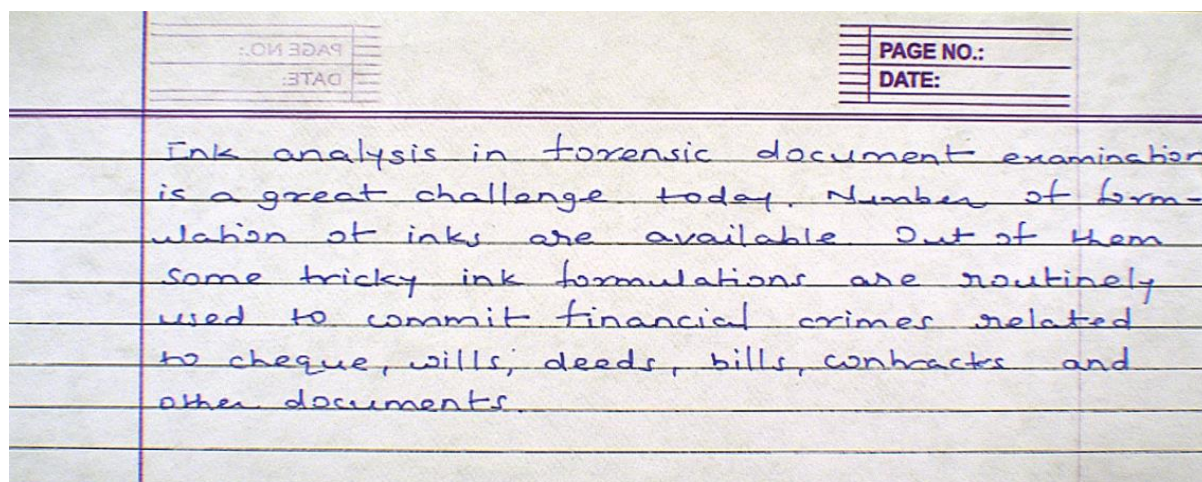 PAGE NO.:
DATE:
PAGE NO.:
DATE:
Ink analysis in forensic document examination
is a great challenge today. Number of form-
ulation of inks are available. Out of them
some tricky ink formulations are routinely
used to commit financial crimes related
to cheque, wills, deeds, bills, contracts and
other documents.